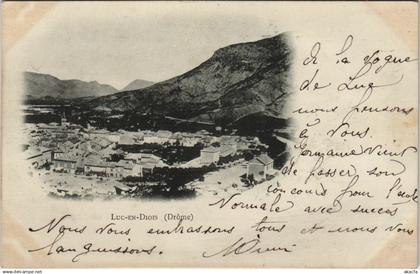 de la vogue
de Luc
nous pensons
à vous.
Germaine vient
de passer son
concours pour l'école
LUC-EN-DIOIS (Drôme)
Normale avec succès
Nous vous embrassons tous et nous vous
languissons.